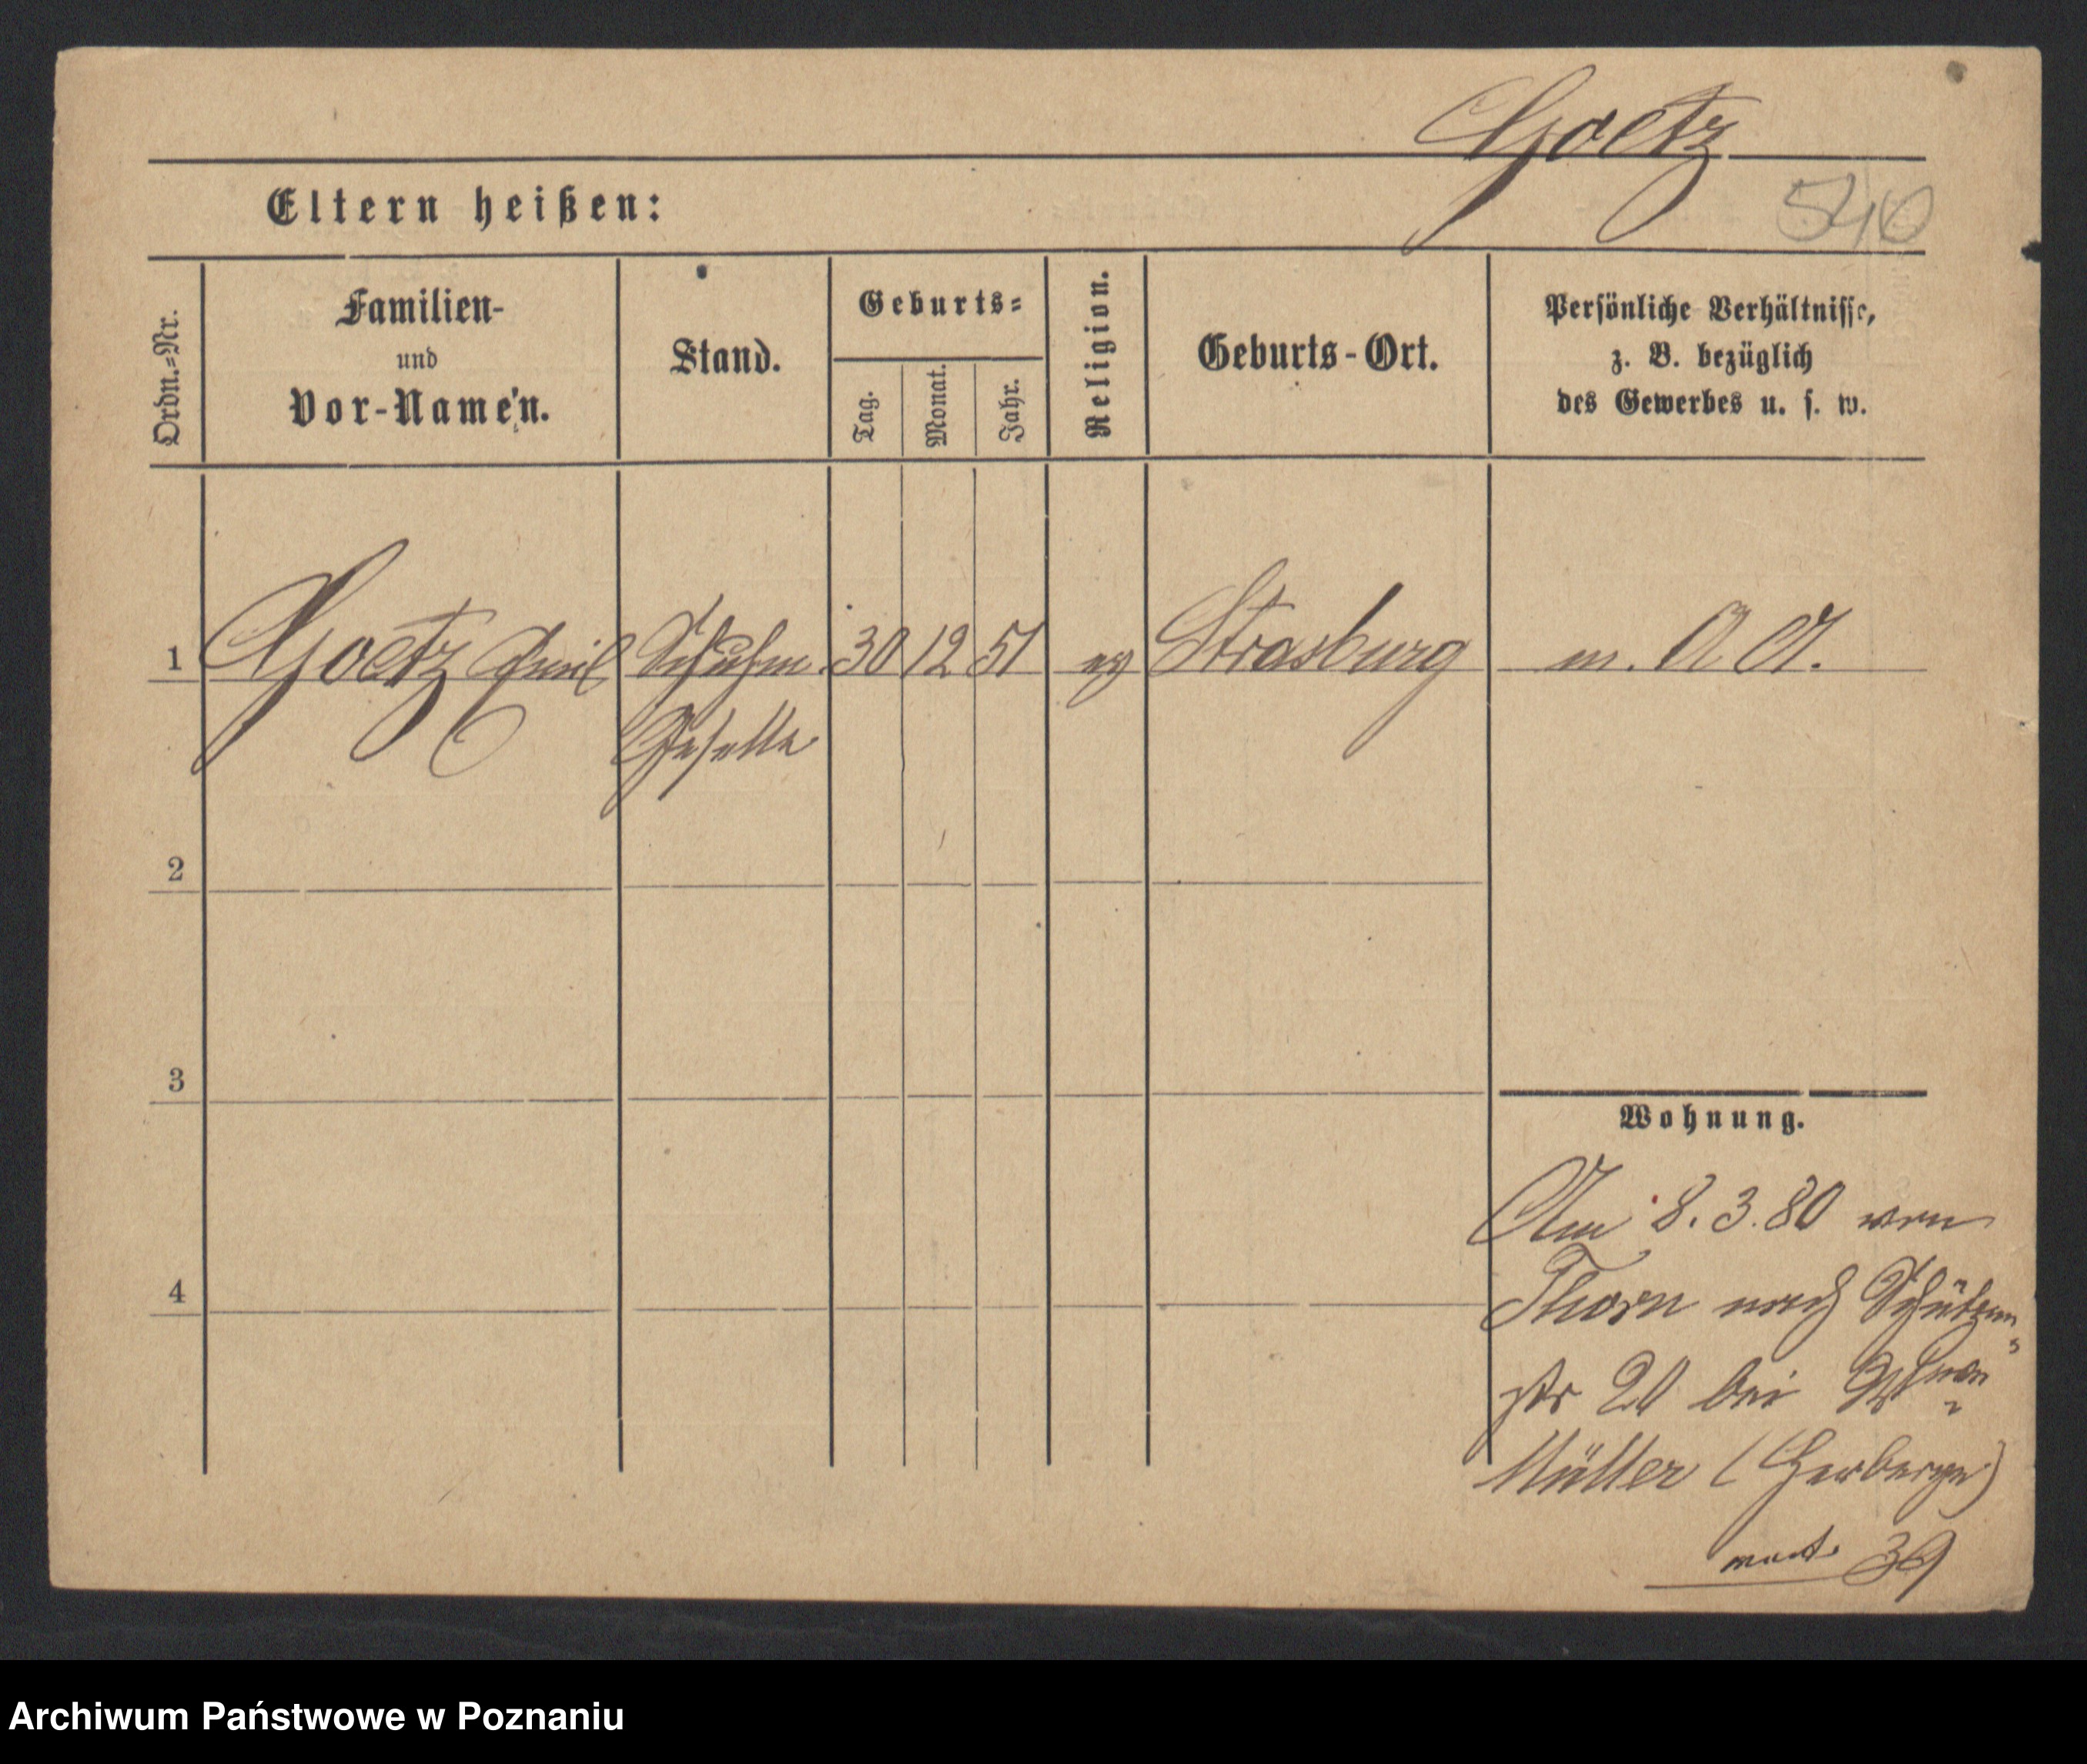 Goetz
540
Eltern heißen:
Ordn.=Nr.
Familien-
und
Vor-Namen.
Stand.
Geburts=
Tag.
Monat.
Jahr.
Religion.
Geburts-Ort.
Persönliche Verhältnisse,
z. B. bezüglich
des Gewerbes u. s. w.
1 Goetz Emil Schuhm. 30 12 51 ev Strasburg m. A A.
Geselle
2
3
Wohnung.
Am 8.3.80 von
4
Thorn nach Schützen
str 20 bei
Müller (Herberge)
39
Archiwum Państwowe w Poznaniu